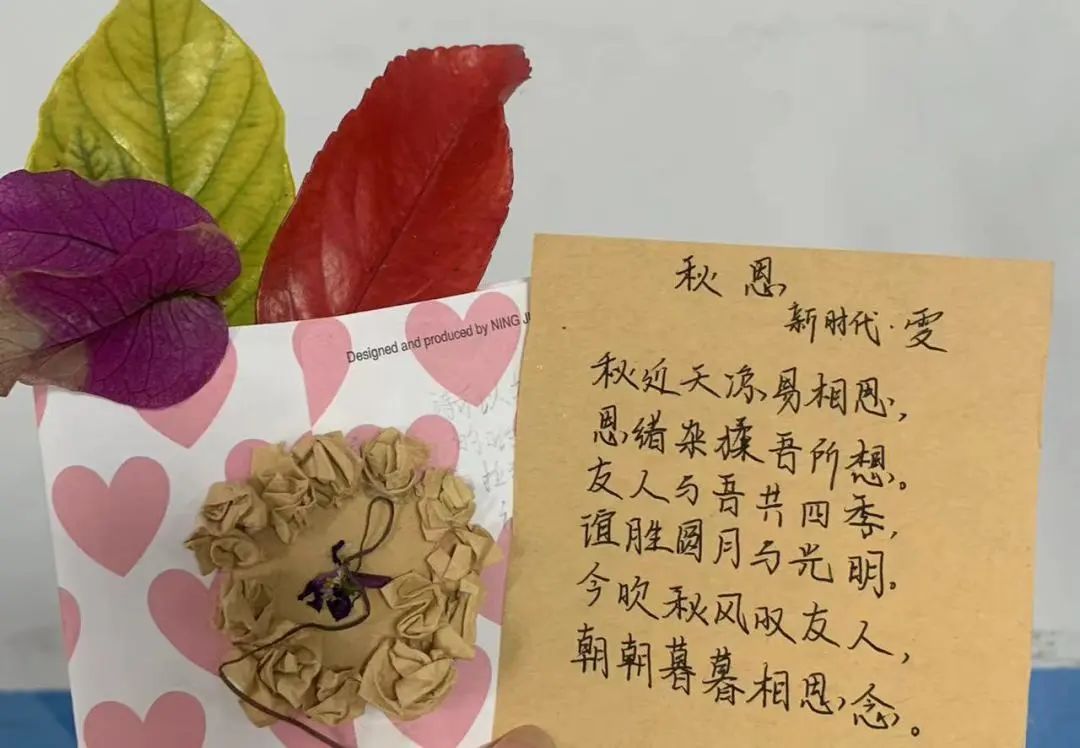 Designed and produced by NING
秋思
新时代·雯
秋近天凉易相思,
思绪杂揉吾所想。
友人与吾共四季,
谊胜圆月与光明。
今吹秋风叹友人,
朝朝暮暮相思念。